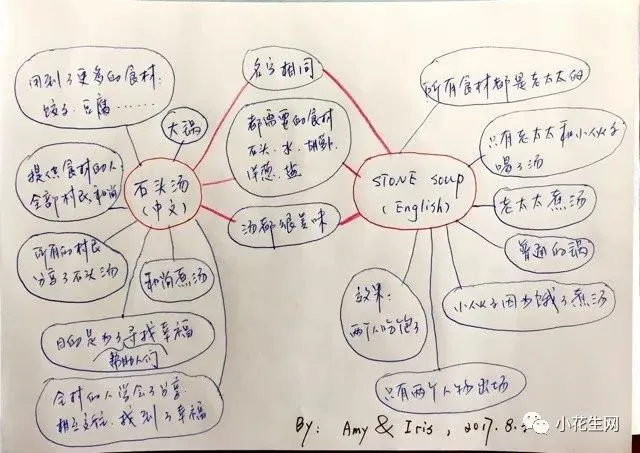 用到了更多的食材.
饺子、豆腐……
大锅
提供食材的人:
全部村民、和尚
石头汤
(中文)
所有的村民
分享了石头汤
和尚煮汤
目的是为了寻找幸福
帮助人们
全村的人学会了分享.
相互交往、找到了幸福
名字相同
都需要的食材
石头、水、胡萝卜
洋葱、盐
汤都很美味
STONE SOUP
(English)
所有食材都是老太太的
只有老太太和小伙子
喝了汤
老太太煮汤
普通的锅
小伙子因为饿了煮汤
效果:
两个人吃饱了
只有两个人物出场
By: Amy & Iris, 2017.8.
小花生网